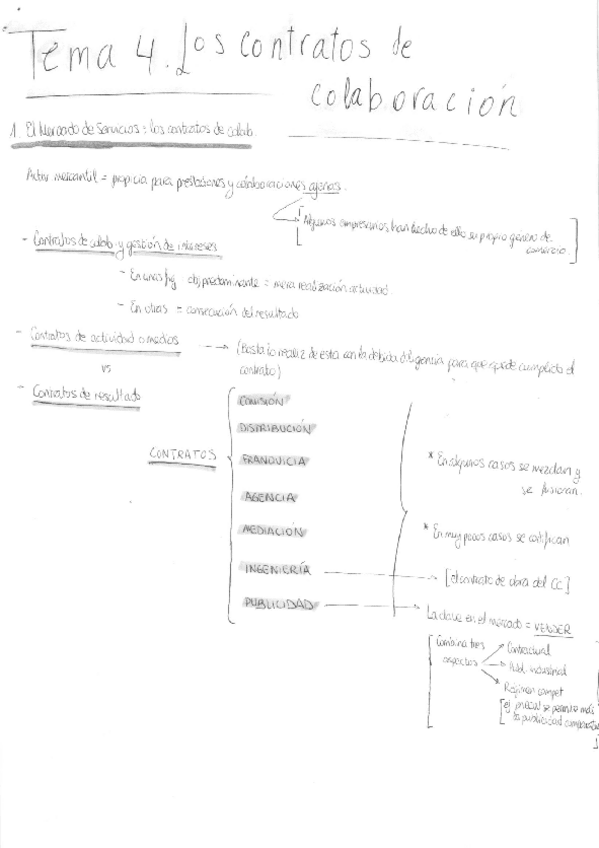 Tema 4. Los contratos de
colaboración
1. El Mercado de Servicios: los contratos de colab.
mercantil = propicia para prestaciones y colaboraciones ajenas.
Algunos empresarios han hecho de ello su propio género de
comercio.
- Contratos de colab. y gestión de intereses
- En unas fig. obj predominante = mera realización actividad.
- En otras = consecución del resultado
- Contratos de actividad o medios → (Basta la realiz de esta con la debida diligencia para que quede cumplido el
contrato)
vs
- Contratos de resultado
CONTRATOS
COMISIÓN
DISTRIBUCIÓN
FRANQUICIA
AGENCIA
MEDIACIÓN
INGENIERÍA → [el contrato de obra del CC]
PUBLICIDAD → La clave en el mercado = VENDER
* En algunos casos se mezclan y
se fusionan.
* En muy pocos casos se codifican
Combina tres
aspectos
Contractual
industrial
Régimen compet
se permite más
la publicidad